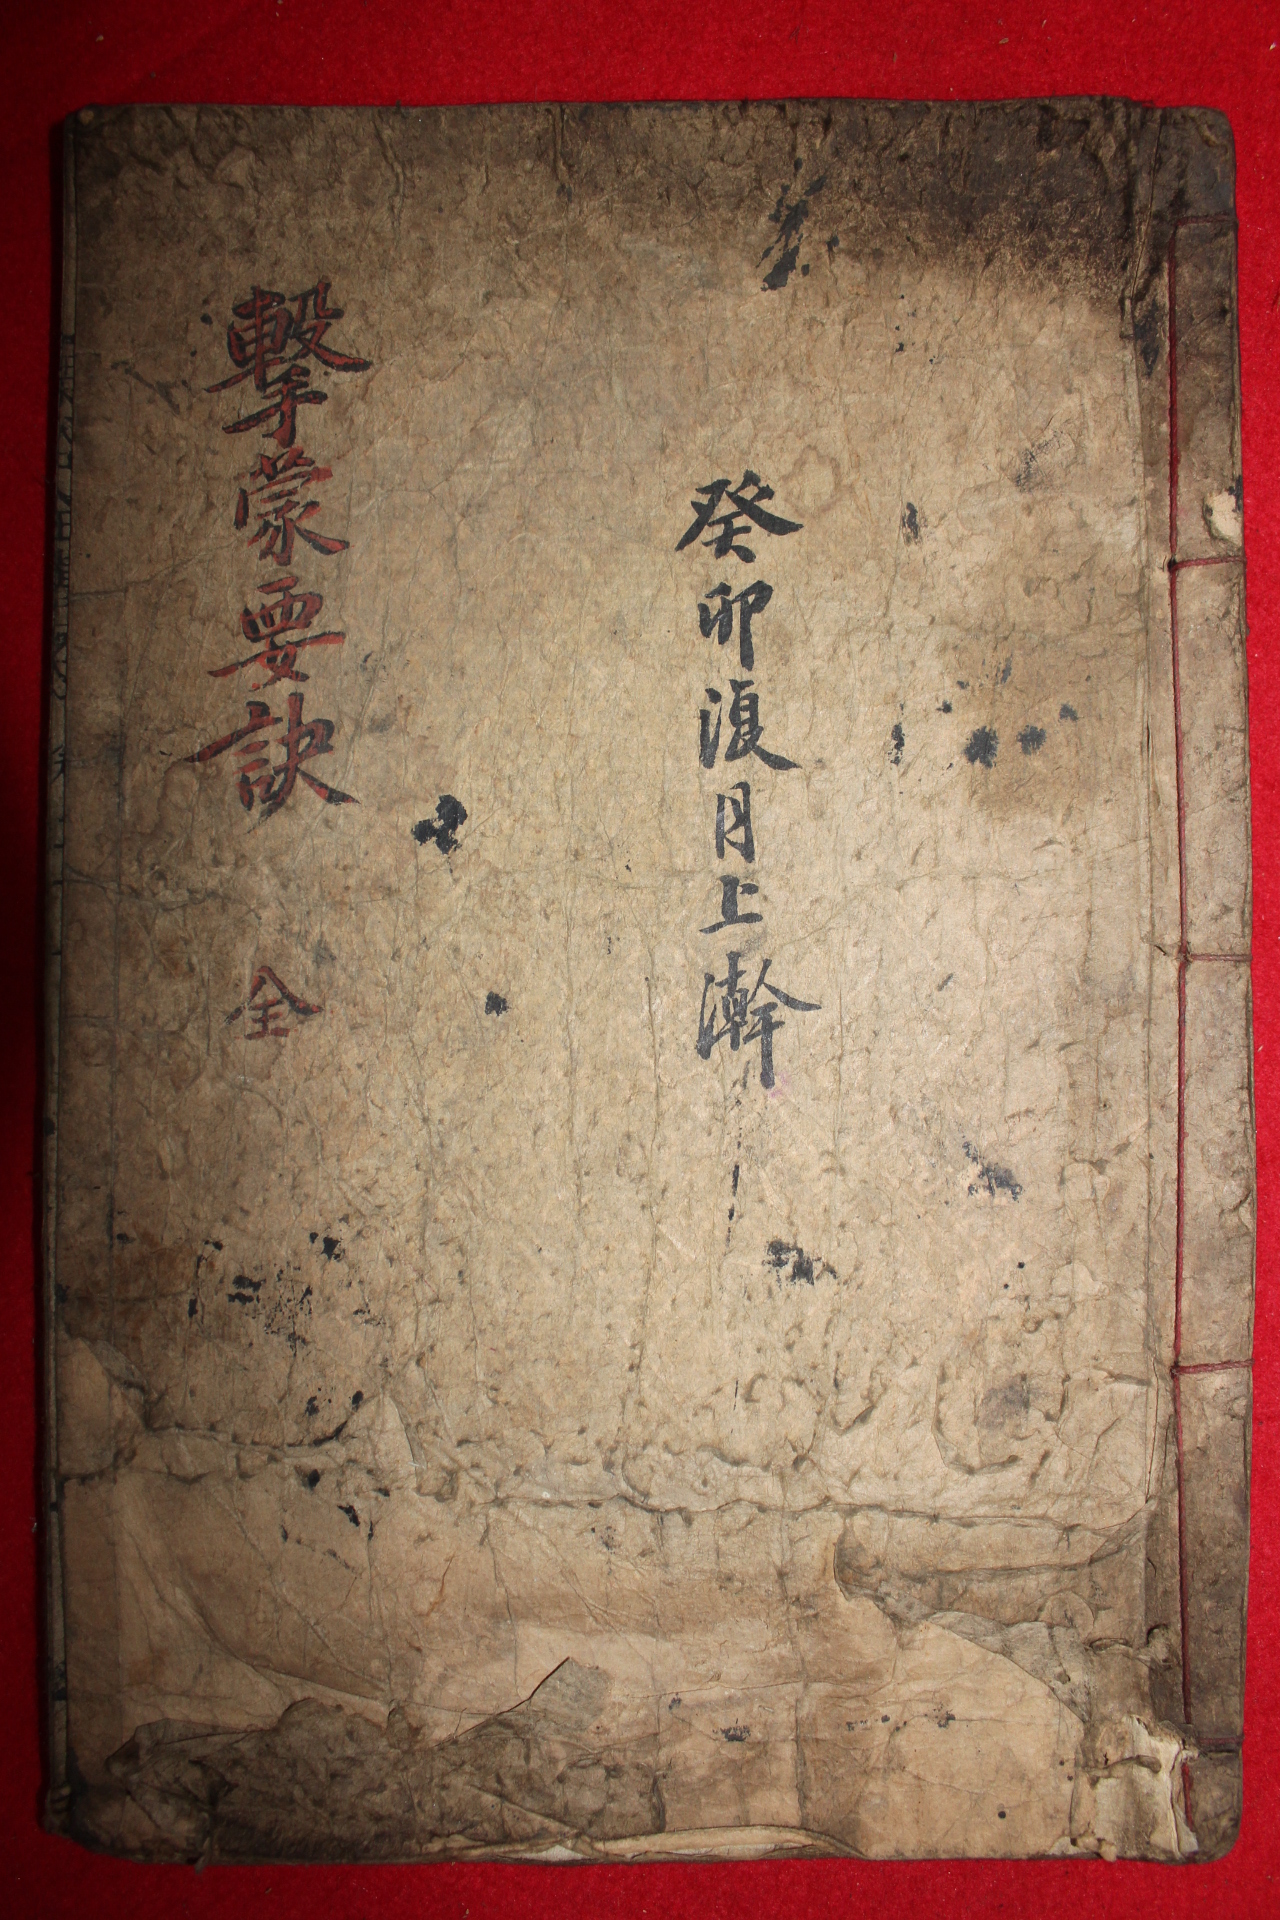 癸卯復月上澣
擊蒙要訣 全